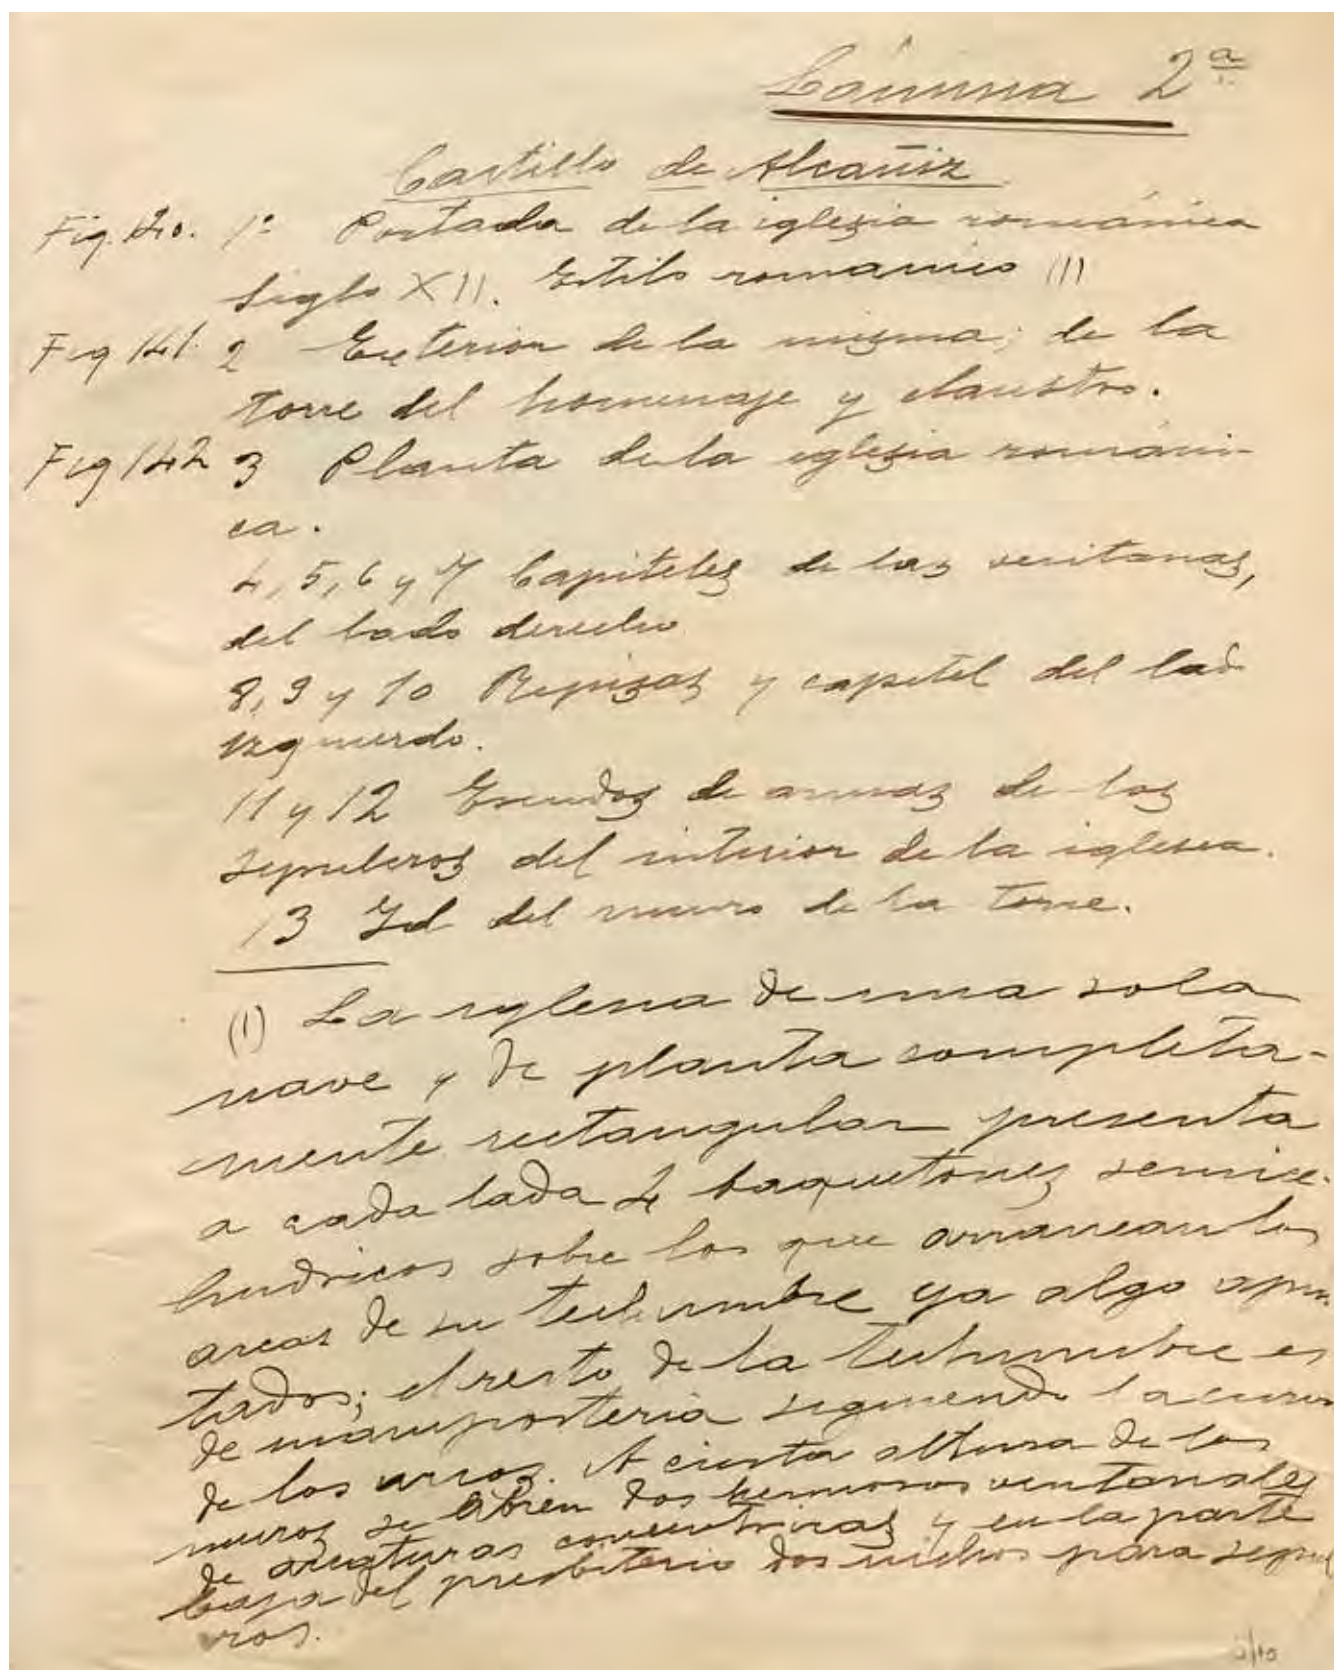 Lámina 2ª
Castillo de Alcañiz
Fig. 140. 1º Portada de la iglesia románica
siglo XII. Estilo romanico (1)
Fig 141. 2 Exterior de la misma; de la
torre del homenaje y claustro.
Fig 142 3 Planta de la iglesia románi-
ca.
4, 5, 6 y 7 Capiteles de las ventanas,
del lado derecho
8, 9 y 10 Repisas y capitel del lado
izquierdo.
11 y 12 Escudos de armas de los
sepulcros del interior de la iglesia.
13 Id del muro de la torre.
(1) La iglesia de una sola
nave y de planta completa-
mente rectangular presenta
a cada lado 4 baquetones semici-
lindricos sobre los que arrancan los
arcos de su techumbre ya algo apun-
tados; el resto de la techumbre es
de mamposteria siguiendo la curva
de los arcos. A cierta altura de los
muros se abren dos hermosos ventanales
de arcaturas concentricas y en la parte
baja del presbiterio dos nichos para sepul
ros.